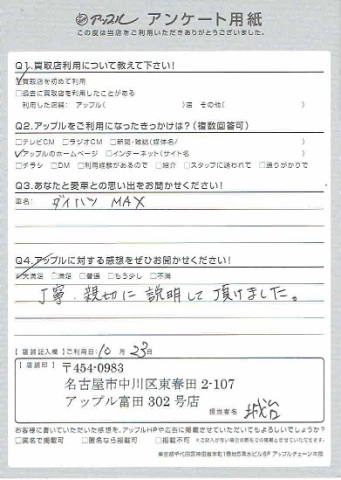 アップル アンケート用紙
この度は当店をご利用いただきありがとうございました。
Q1.買取店利用について教えて下さい!
☑買取店を初めて利用
□過去に買取店を利用したことがある
利用した店舗: アップル( )店 その他( )
Q2.アップルをご利用になったきっかけは?(複数回答可)
□テレビCM □ラジオCM □新聞・雑誌(媒体名/ )
☑アップルのホームページ □インターネット(サイト名 )
□チラシ □DM □利用経験があるので □紹介 □スタッフに誘われて □通りがかりで
Q3.あなたと愛車との思い出をお聞かせください!
車名: ダイハツ MAX
Q4.アップルに対する感想をぜひお聞かせください!
☑大満足 □満足 □普通 □もう少し □不満
丁寧、親切に説明して頂けました。
【店舗記入欄】ご利用日: 10月 23日
【店舗印】
〒454-0983
名古屋市中川区東春田 2-107
アップル富田 302 号店
担当者名
お客様に書いていただいた感想を、アップルHPや広告に掲載させていただいてもよろしいでしょうか?
□実名で掲載可 □匿名なら掲載可 □掲載不可
アップルチェーン本部